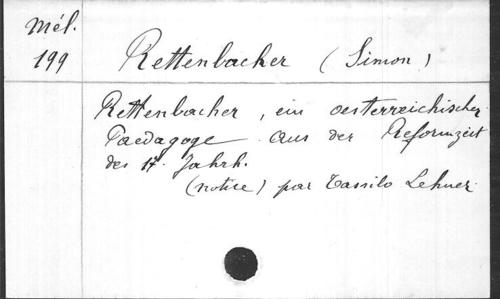 Mél.
199
Rettenbacher (Simon)
Rettenbacher, ein oesterreichischer
Paedagoge aus der Reformzeit
des 17. Jahrh.
(notice) par Tassilo Lehner